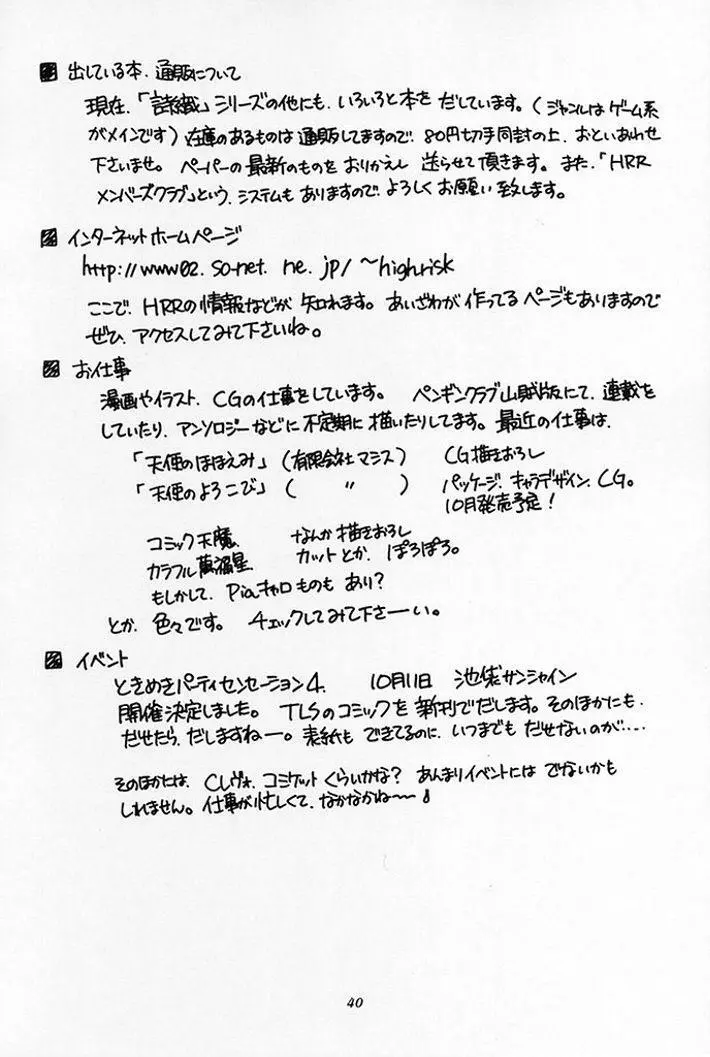 出している本、通販について
現在、「諸織」シリーズの他にも、いろいろと本を だしています。(ジャンルは ゲーム系
がメインです) 在庫のあるものは 通販してますので、80円切手同封の上、おといあわせ
下さいませ。 ペーパーの 最新のものを おりかえし 送らせて 頂きます。 また、「HRR
メンバーズクラブ」という、システムも ありますので、よろしく お願い 致します。
インターネットホームページ
http://www02.so-net.ne.jp/~highrisk
ここで、HRRの情報などが 知れます。あいざわが 作ってる ページもありますので
ぜひ、アクセスしてみて下さいね。
お仕事
漫画やイラスト、CGの仕事をしています。 ペンギンクラブ山賊版にて、連載を
していたり、アンソロジーなどに 不定期に 描いたりしてます。最近の仕事は、
「天使のほほえみ」 (有限会社マシス) CG描きおろし
「天使のよろこび」 ( 〃 ) パッケージ、キャラデザイン、CG。
10月発売予定!
コミック天魔、 なんか描きおろし
カラフル萬福星 カットとか、ぽろぽろ。
もしかして、Piaキャロものも あり?
とか、色々です。 チェックしてみて下さーい。
イベント
ときめきパーティセンセーション4、 10月11日 池袋サンシャイン
開催決定しました。 TLSのコミックを 新刊でだします。そのほかにも、
だせたら、だしますねー。表紙も できてるのに、いつまでも だせないのが‥‥
そのほかには、Cレヴォ、コミケット くらいかな? あんまりイベントには でないかも
しれません。仕事が忙しくて、なかなかね〜〜
40